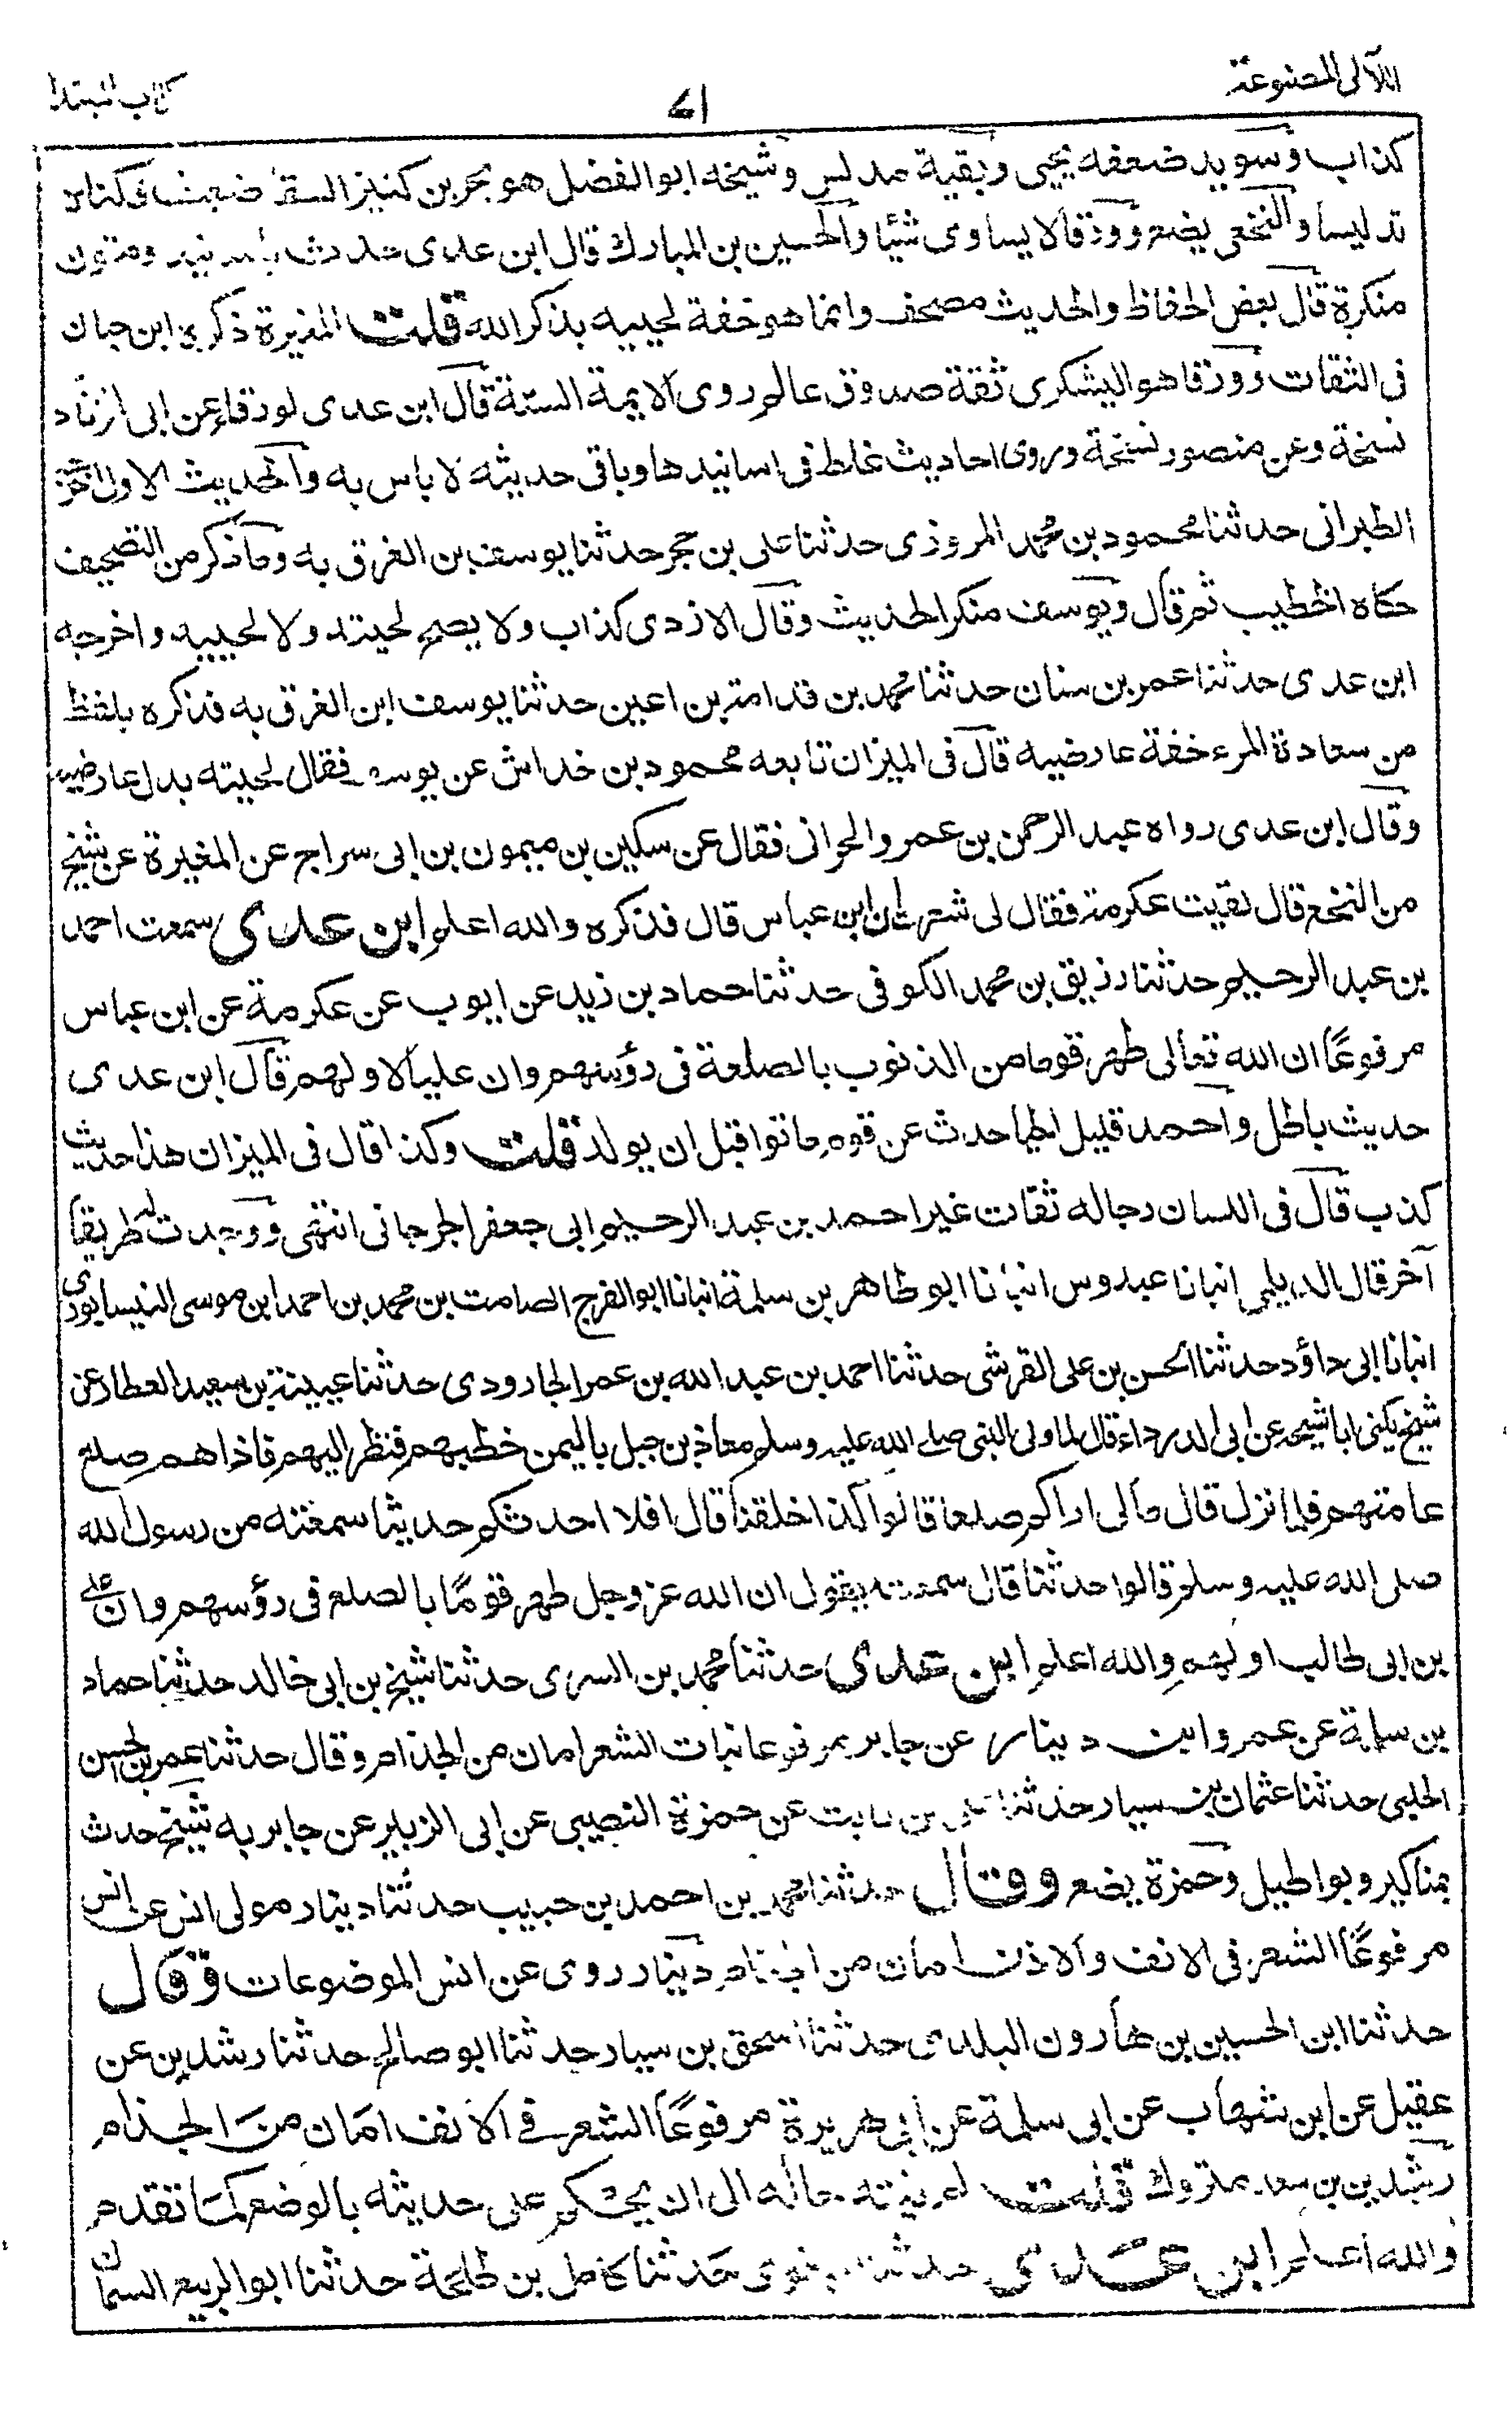 اللآلى المصنوعة
٦١
كتاب المبتدا
كذاب وسويد ضعفه يحيى وبقية مدلس وشيخه ابو الفضل هو بحر بن كنيز السقا ضعيف وكناه
تدليسا والنخعى يضع وورقا لا يساوى شيئا والحسين بن المبارك قال ابن عدى حدث باسانيد ومتون
منكرة قال بعض الحفاظ والحديث مصحف وانما هو خفة لحييه بذكر الله قلت المغيرة ذكره ابن حبان
فى الثقات وورقا هو اليشكرى ثقة صدوق عالم روى الايمة الستة قال ابن عدى لورقاء عن ابى الزناد
نسخة وعن منصور نسخة وروى احاديث غلط فى اسانيدها وباقى حديثه لا باس به والحديث الاول اخرجه
الطبرانى حدثنا محمود بن محمد المروزى حدثنا على بن حجر حدثنا يوسف بن الغرق به وما ذكر من التصحيف
حكاه الخطيب ثم قال ويوسف منكر الحديث وقال الازدى كذاب ولا يصح لحيته ولا لحييه واخرجه
ابن عدى حدثنا عمر بن سنان حدثنا محمد بن قدامة بن اعين حدثنا يوسف ابن الغرق به فذكره بلفظ
من سعادة المرء خفة عارضيه قال فى الميزان تابعه محمود بن خداش عن يوسف فقال لحيته بدل عارضيه
وقال ابن عدى رواه عبد الرحمن بن عمرو الحرانى فقال عن سكين بن ميمون بن ابى سراج عن المغيرة عن شيخ
من النخع قال لقيت عكرمة فقال لى شعرت ان ابن عباس قال فذكره والله اعلم ابن عدى سمعت احمد
بن عبد الرحيم حدثنا رزيق بن محمد الكوفى حدثنا حماد بن زيد عن ايوب عن عكرمة عن ابن عباس
مرفوعًا ان الله تعالى طهر قوما من الذنوب بالصلعة فى رؤسهم وان عليا لاولهم قال ابن عدى
حديث باطل واحمد قليل الحيا حدث عن قوم ماتوا قبل ان يولد قلت وكذا قال فى الميزان هذا حديث
كذب قال فى اللسان رجاله ثقات غير احمد بن عبد الرحيم ابى جعفر الجرجانى انتهى ووجدت له طريقا
آخر قال الديلمى انبانا عبدوس انبانا ابو طاهر بن سلمة انبانا ابو الفرج الصامت بن محمد بن احمد ابن موسى النيسابورى
انبانا ابى داؤد حدثنا الحسن بن على القرشى حدثنا احمد بن عبد الله بن عمر الجارودى حدثنا عيينة بن سعيد العطار عن
شيخ يكنى ابا شيحه عن ابى الدرداء قال لما ولى النبى صلى الله عليه وسلم معاذ بن جبل باليمن خطبهم فنظر اليهم فاذا هم صلع
عامتهم فلما نزل قال مالى اراكم صلعا قالوا كذا خلقنا قال افلا احدثكم حديثا سمعته من رسول الله
صلى الله عليه وسلم قالوا حدثنا قال سمعته يقول ان الله عز وجل طهر قومًا بالصلع فى رؤسهم وان على
بن ابى طالب اولهم والله اعلم ابن عدى حدثنا محمد بن السرى حدثنا شيخ بن ابى خالد حدثنا حماد
بن سلمة عن عمرو ابن دينار عن جابر مرفوعا نبات الشعر امان من الجذام وقال حدثنا عمر بن الحسن
الحلبى حدثنا عثمان بن سيار حدثنا على بن ثابت عن حمزة النصيبى عن ابى الزبير عن جابر به شيخ حدث
بمناكير وبواطيل وحمزة يضع وقال حدثنا محمد بن احمد بن حبيب حدثنا دينار مولى انس عن انس
مرفوعًا الشعر فى الانف والاذن امان من الجذام دينار روى عن انس الموضوعات وقال
حدثنا ابن الحسين بن هارون البلدى حدثنا اسحق بن سيار حدثنا ابو صالح حدثنا رشدين عن
عقيل عن ابن شهاب عن ابى سلمة عن ابى هريرة مرفوعًا الشعر فى الانف امان من الجذام
رشدين بن سعد متروك قلت لم ينته حاله الى ان يحكم على حديثه بالوضع كما تقدم
والله اعلم ابن عدى حدثنا البغوى حدثنا كامل بن طلحة حدثنا ابو الربيع السمان